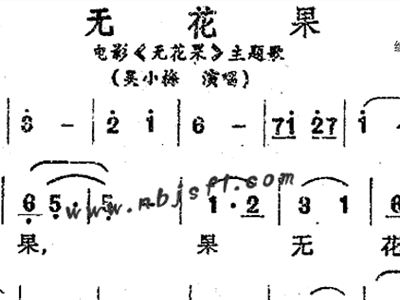 无花果
电影《无花果》主题歌
(吴小梅 演唱)
3 - | 2 1 | 6 - | 71 27 | 1
6 5· | 5 | 1·2 | 3 1 | 6
www.nbjsfl.com
果, 果 无 花